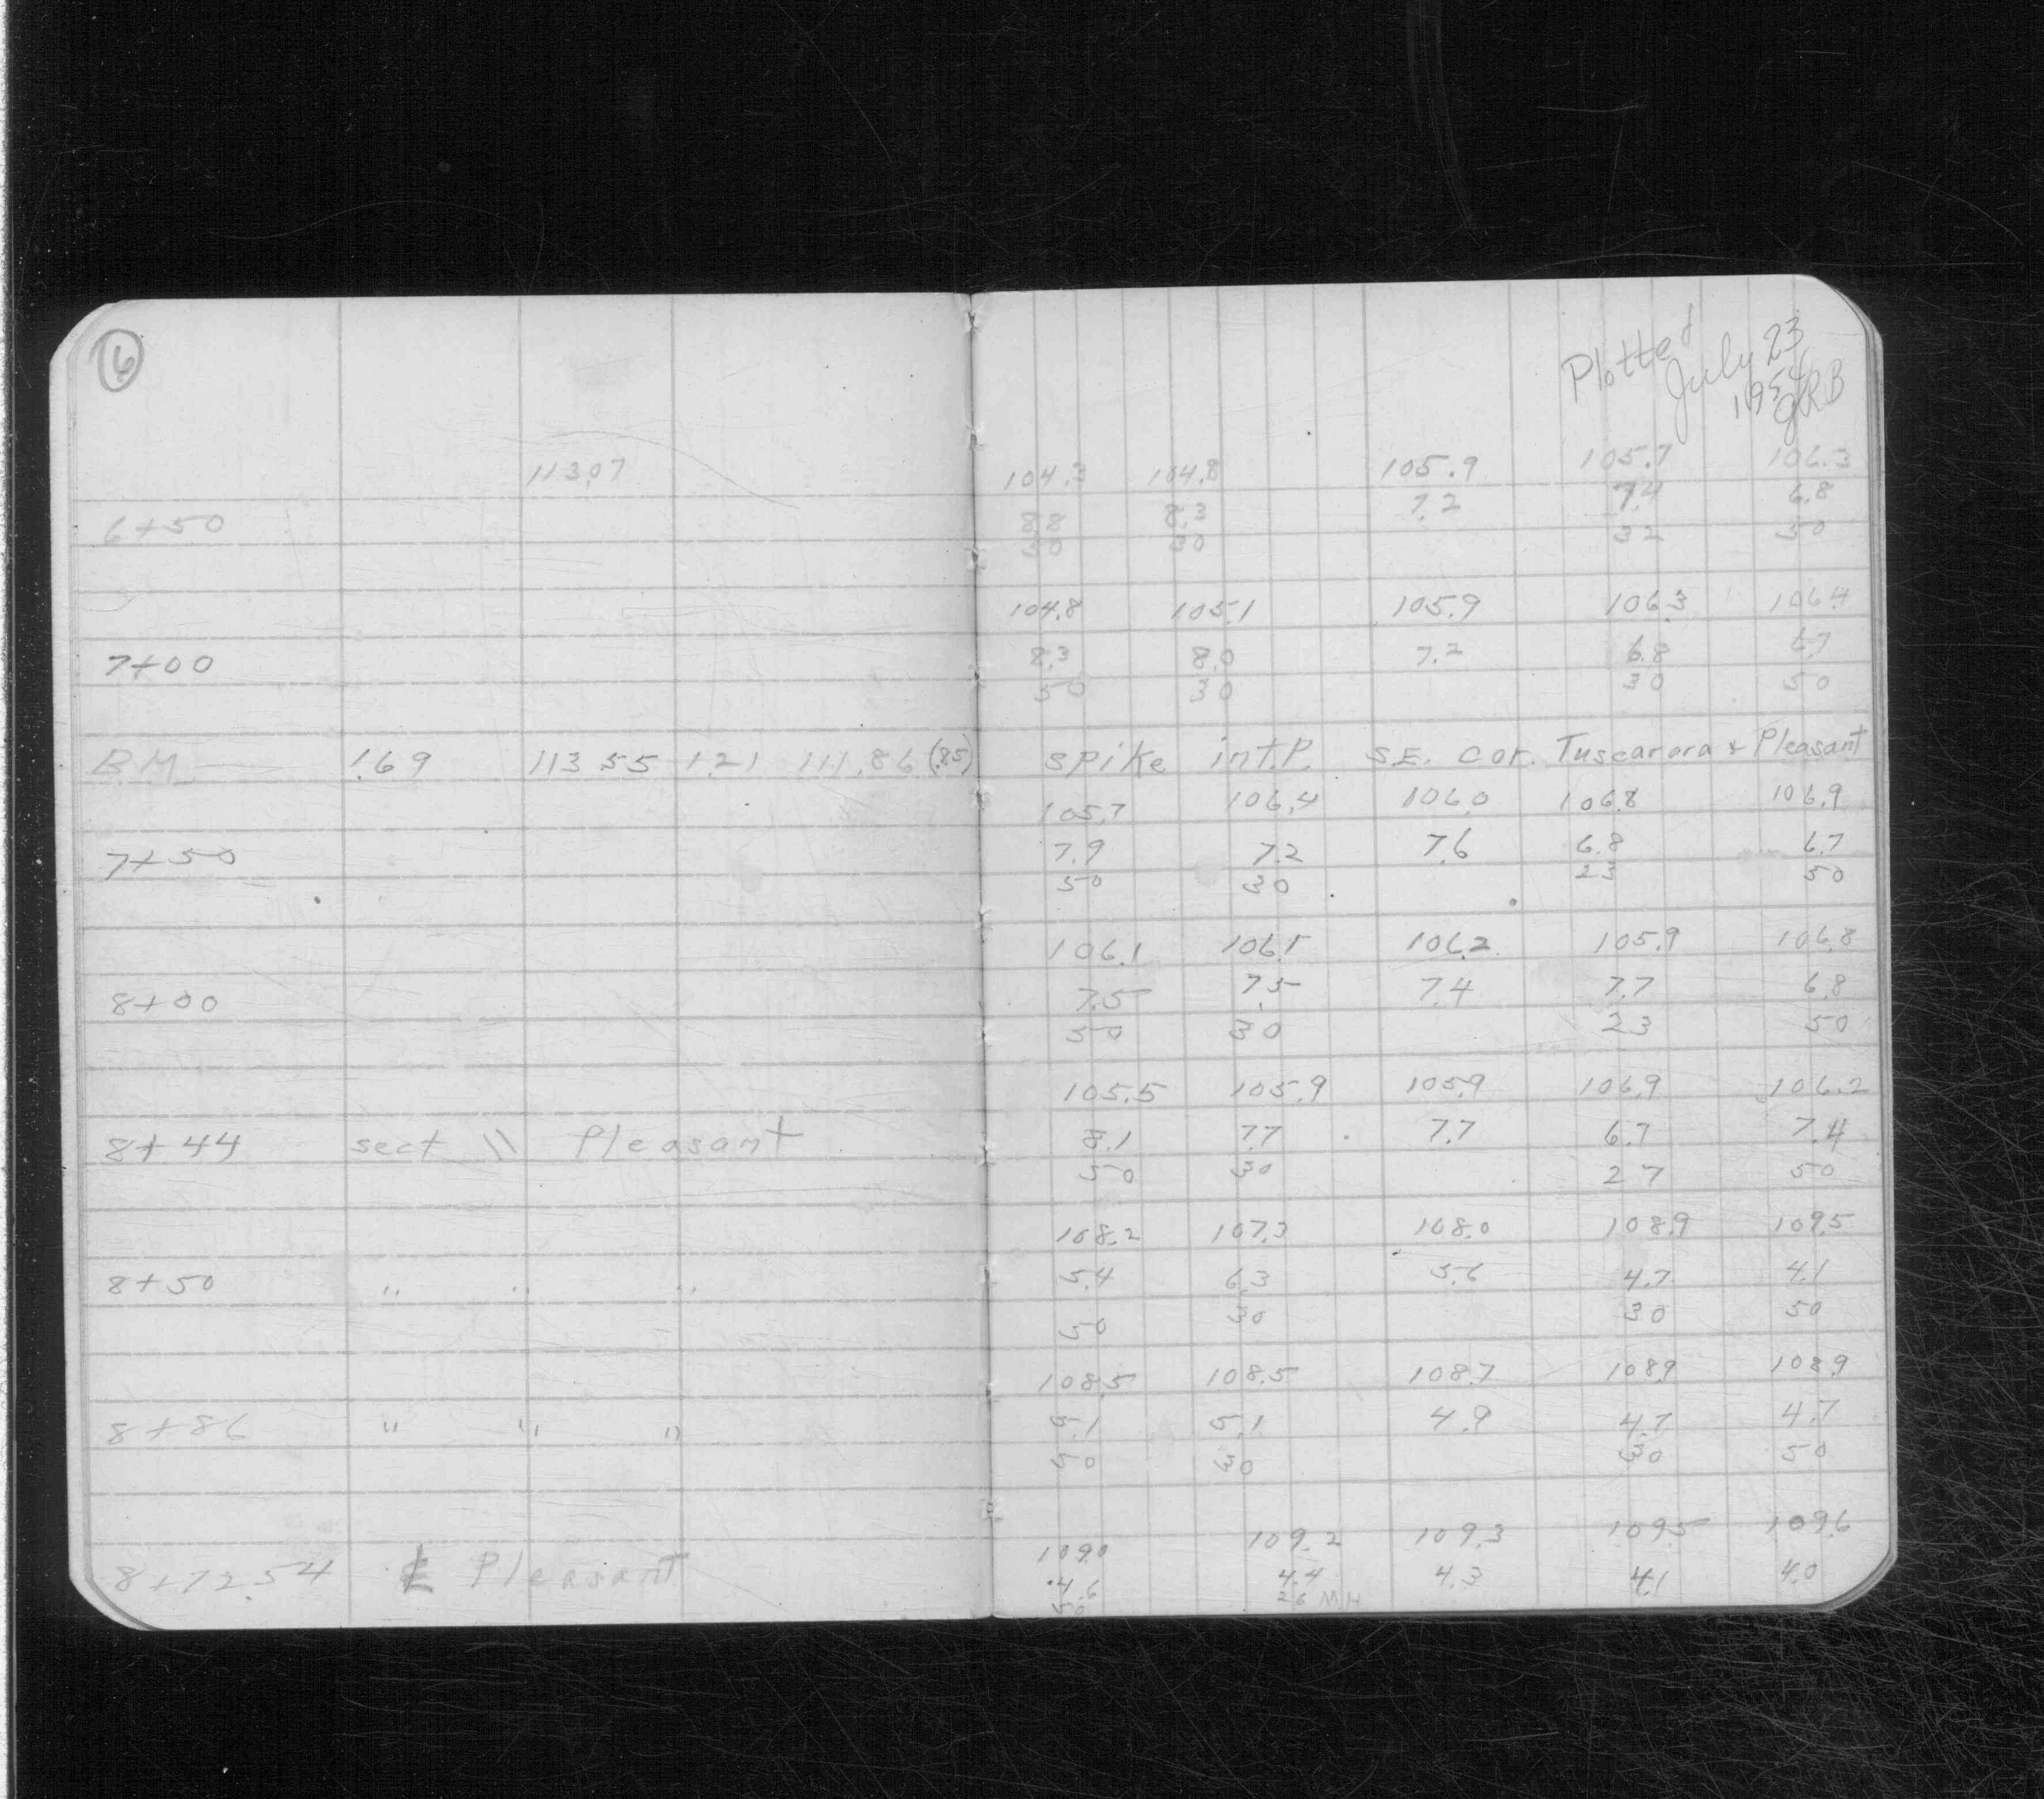 6
Plotted
July 23
1954
JRB
113.07 104.3 104.8 105.9 105.7 106.3
6+50 8.8 8.3 7.2 7.4 6.8
50 30 32 50
104.8 105.1 105.9 106.3 106.4
7+00 8.3 8.0 7.2 6.8 6.7
50 30 30 50
B.M. 1.69 113.55 1.21 111.86 (.85) spike in T.P. S.E. cor. Tuscarora & Pleasant
105.7 106.4 106.0 106.8 106.9
7+50 7.9 7.2 7.6 6.8 6.7
50 30 23 50
106.1 106.1 106.2 105.9 106.8
8+00 7.5 7.5 7.4 7.7 6.8
50 30 23 50
105.5 105.9 105.9 106.9 106.2
8+44 sect \\ Pleasant 8.1 7.7 7.7 6.7 7.4
50 30 27 50
108.2 107.3 108.0 108.9 109.5
8+50 " " " 5.4 6.3 5.6 4.7 4.1
50 30 30 50
108.5 108.5 108.7 108.9 108.9
8+86 " " " 5.1 5.1 4.9 4.7 4.7
50 30 30 50
109.0 109.2 109.3 109.5 109.6
8+72.54 ℄ Pleasant 4.6 4.4 4.3 4.1 4.0
50 26 MH